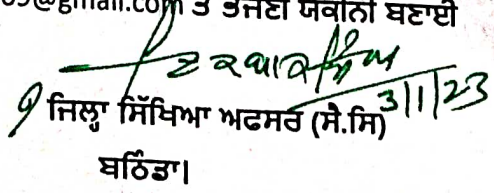 @gmail.com ਤੇ ਭੇਜਣੀ ਯਕੀਨੀ ਬਣਾਈ
3/1/23
ਜਿਲ੍ਹਾ ਸਿੱਖਿਆ ਅਫਸਰ (ਸੈ.ਸਿ)
ਬਠਿੰਡਾ।